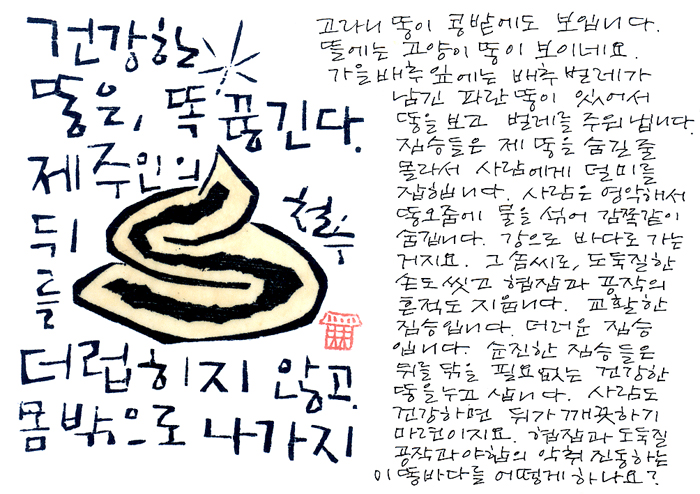 건강한
똥은, 똑 끊긴다.
제 주인의
뒤
를
더럽히지 않고.
몸 밖으로 나가지
철수
고라니 똥이 콩밭에도 보입니다.
뜰에는 고양이 똥이 보이네요.
가을배추잎에는 배추벌레가
남긴 파란똥이 있어서
똥을 보고 벌레를 주워 냅니다.
짐승들은 제 똥을 숨길줄
몰라서 사람에게 덜미를
잡힙니다. 사람은 영악해서
똥오줌에 물을 섞어 감쪽같이
숨깁니다. 강으로 바다로 가는
거지요. 그 솜씨로, 도둑질한
손도 씻고 협잡과 공작의
흔적도 지웁니다. 교활한
짐승입니다. 더러운 짐승
입니다. 순진한 짐승들은
뒤를 닦을 필요없는 건강한
똥을 누고 삽니다. 사람도
건강하면 뒤가 깨끗하기
마련이지요. 협잡과 도둑질
공작과 야합의 악취 진동하는
이 똥바다를 어떻게 하나요?